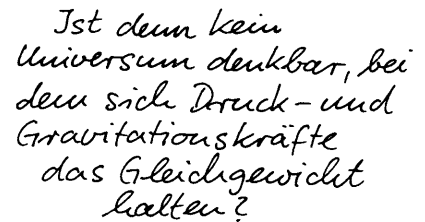 Ist denn kein
Universum denkbar, bei
dem sich Druck- und
Gravitationskräfte
das Gleichgewicht
halten?